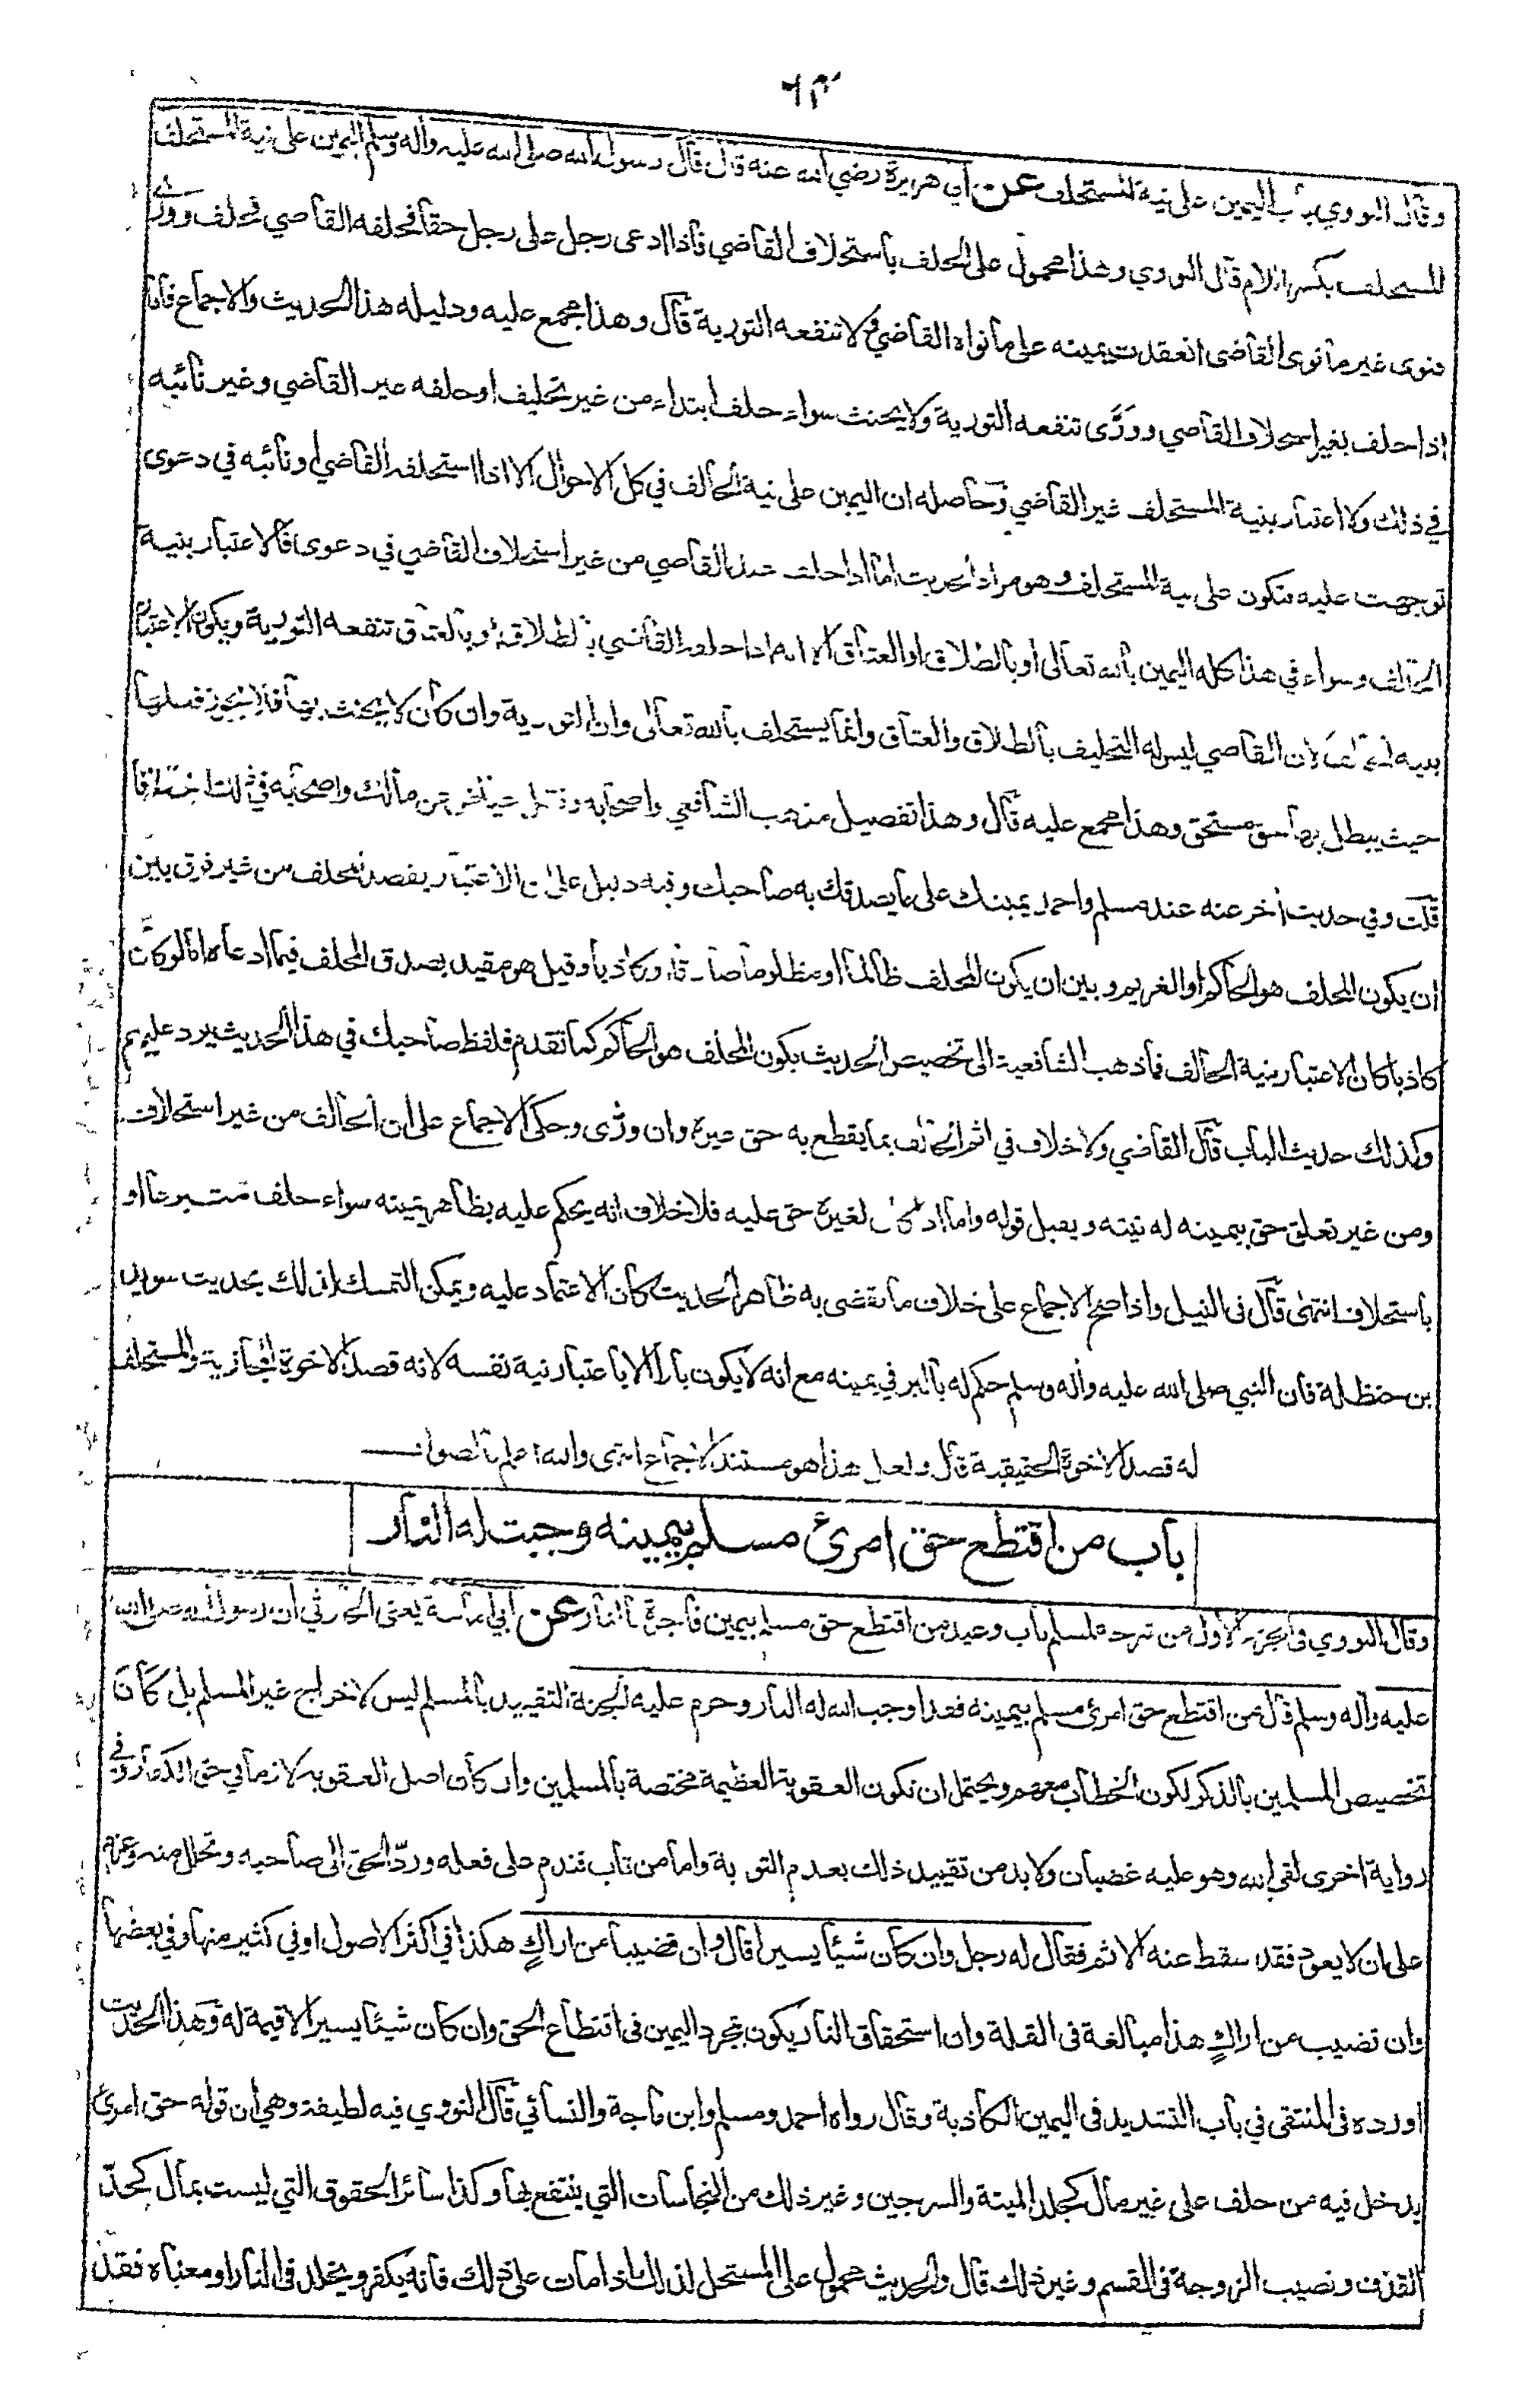 وقال النووي باب اليمين على نية المستحلف عن أبي هريرة رضي الله عنه قال قال رسول الله صلى الله عليه وأله وسلم اليمين على نية المستحلف
المستحلف بكسر اللام قال النووي وهذا محمول على الحلف بأستحلاف القاضي فأذا ادعى رجل على رجل حقا فحلفه القاضي فحلف وورى
فنوى غير مأنوى القاضي انعقدت يمينه على مأنواه القاضي ولا تنفعه التورية قال وهذا مجمع عليه ودليله هذا الحديث والاجماع فأما
اذا حلف بغير استحلاف القاضي وورَّى تنفعه التورية ولا يحنث سواء حلف ابتداء من غير تحليف او حلفه غير القاضي وغير نائبه
في ذلك ولا اعتبار بنية المستحلف غير القاضي وحاصله ان اليمين على نية الحالف في كل الاحوال الا اذا استحلفه القاضي او نائبه في دعوى
توجهت عليه فتكون على نية المستحلف وهو مراد الحديث اما اذا حلف عند القاضي من غير استحلاف القاضي في دعوى فالاعتبار بنية
الحالف وسواء في هذا كله اليمين بالله تعالى او بالطلاق او العتاق الا انه اذا حلفه القاضي بالطلاق او بالعتاق تنفعه التورية ويكون الاعتبار
بنية الحالف لان القاضي ليس له التحليف بالطلاق والعتاق وانما يستحلف بالله تعالى وان التورية وان كان لا يحنث بها فلا يجوز فعلها
حيث يبطل بها حق مستحق وهذا مجمع عليه قال وهذا تفصيل مذهب الشافعي واصحابه ونقل عياض عن مالك واصحابه في ذلك اختلافا
قلت وفي حديث أخر عنه عند مسلم واحمد يمينك على ما يصدقك به صاحبك وفيه دليل على ان الاعتبار بقصد المحلف من غير فرق بين
ان يكون المحلف هو الحاكم او الغريم وبين ان يكون المحلف ظالما او مظلوما صادقا او كاذبا وقيل هو مقيد بصدق المحلف فيما ادعاه اما لو كان
كاذبا كان الاعتبار بنية الحالف فما ذهب الشافعية الى تخصيص الحديث بكون المحلف هو الحاكم كما تقدم فلفظ صاحبك في هذا الحديث يرد عليهم
وكذلك حديث الباب قال القاضي ولا خلاف في اثم الحالف بما يقطع به حق غيره وان ورّى وحكى الاجماع على ان الحالف من غير استحلاف
ومن غير تعلق حق بيمينه له نيته ويقبل قوله واما اذا كان لغيره حق عليه فلا خلاف انه يحكم عليه بظاهر يمينه سواء حلف متبرعا او
باستحلاف انتهى قال في النيل واذا صح الاجماع على خلاف ما يقضي به ظاهر الحديث كان الاعتماد عليه ويمكن التمسك لذلك بحديث سويد
بن حنظلة فان النبي صلى الله عليه وأله وسلم حكم له بالبر في يمينه مع انه لا يكون بارا الا باعتبار نية نفسه لانه قصد الاخوة المجازية والمستحلف
له قصد الاخوة الحقيقية قال ولعل هذا هو مستند الاجماع انتهى والله اعلم بالصواب
باب من اقتطع حق امرئ مسلم بيمينه وجبت له النار
وقال النووي في الجزء الاول من شرحه لمسلم باب وعيد من اقتطع حق مسلم بيمين فاجرة بالنار عن أبي امامة يعني الحارثي ان رسول الله صلى الله
عليه وآله وسلم قال من اقتطع حق امرئ مسلم بيمينه فقد اوجب الله له النار وحرم عليه الجنة التقييد بالمسلم ليس لاخراج غير المسلم بل كان
تخصيص المسلمين بالذكر لكون الخطاب معهم ويحتمل ان تكون العقوبة العظيمة مختصة بالمسلمين وان كان اصل العقوبة لازما في حق الكفار وفي
رواية اخرى لقي الله وهو عليه غضبان ولا بد من تقييد ذلك بعدم التوبة واما من تاب فندم على فعله وردّ الحق الى صاحبه وتحلل منه وعزم
على ان لا يعود فقد سقط عنه الاثم فقال له رجل وان كان شيئا يسيرا قال وان قضيبا من اراكٍ هكذا في اكثر الاصول او في كثير منها وفي بعضها
وان قضيب من اراكٍ هذا مبالغة في القلة وان استحقاق النار يكون بمجرد اليمين في اقتطاع الحق وان كان شيئا يسيرا لا قيمة له وهذا الحديث
اورده في المنتقى في باب التشديد في اليمين الكاذبة وقال رواه احمد ومسلم وابن ماجة والنسائي قال النووي فيه لطيفة وهي ان قوله حق امرئ
يدخل فيه من حلف على غير مال كجلد الميتة والسرجين وغير ذلك من النجاسات التي ينتفع بها وكذا سائر الحقوق التي ليست بمال كحدّ
القذف ونصيب الزوجة في القسم وغير ذلك قال والحديث محمول على المستحل لذلك اذا مات على ذلك فانه يكفر ويخلد في النار او معناه فقد